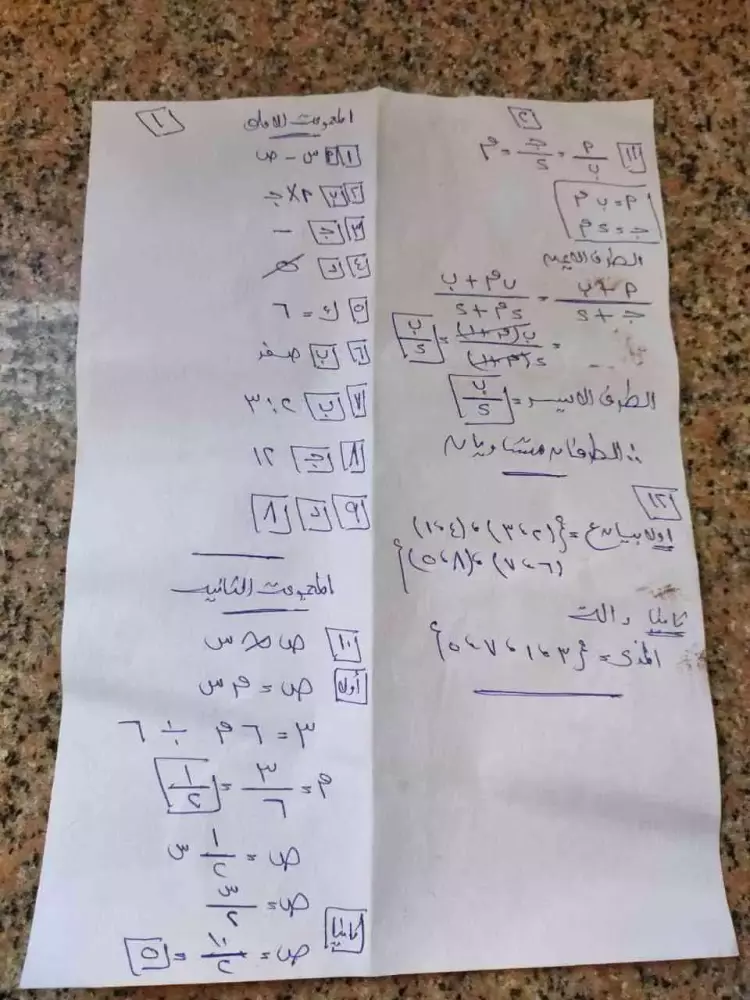 ١
المجموعة الأولى
١ س - ص
٢ ٢ × ج
٣ ج -
٤ د
٥ ك = ٦
٦ ب صفر
٧ ب ٢ : ٣
٨ ج ١٢
٩ د ٨
المجموعة الثانية
١٠ ص ∝ س
أولا ص = م س
٣ = ٦ م ÷ ٦
م = ٣/٦ = ١/٢
ص = ١/٢ س
ثانيا
ص = س/٢
ص = ١٠/٢ = ٥
٢
١١ أ/ب = ج/د = م
أ = ب م
ج = د م
الطرف الأيمن
أ + ب / ج + د = ب م + ب / د م + د
= ب(م+١) / د(م+١) = ب/د
الطرف الأيسر = ب/د
∴ الطرفان متساويان
١٢
أولا بيان ع = {(٢،٣)،(٤،١)
(٦،٧)،(٨،٥)}
ثانيا دالة
المدى = {٣،١،٧،٥}